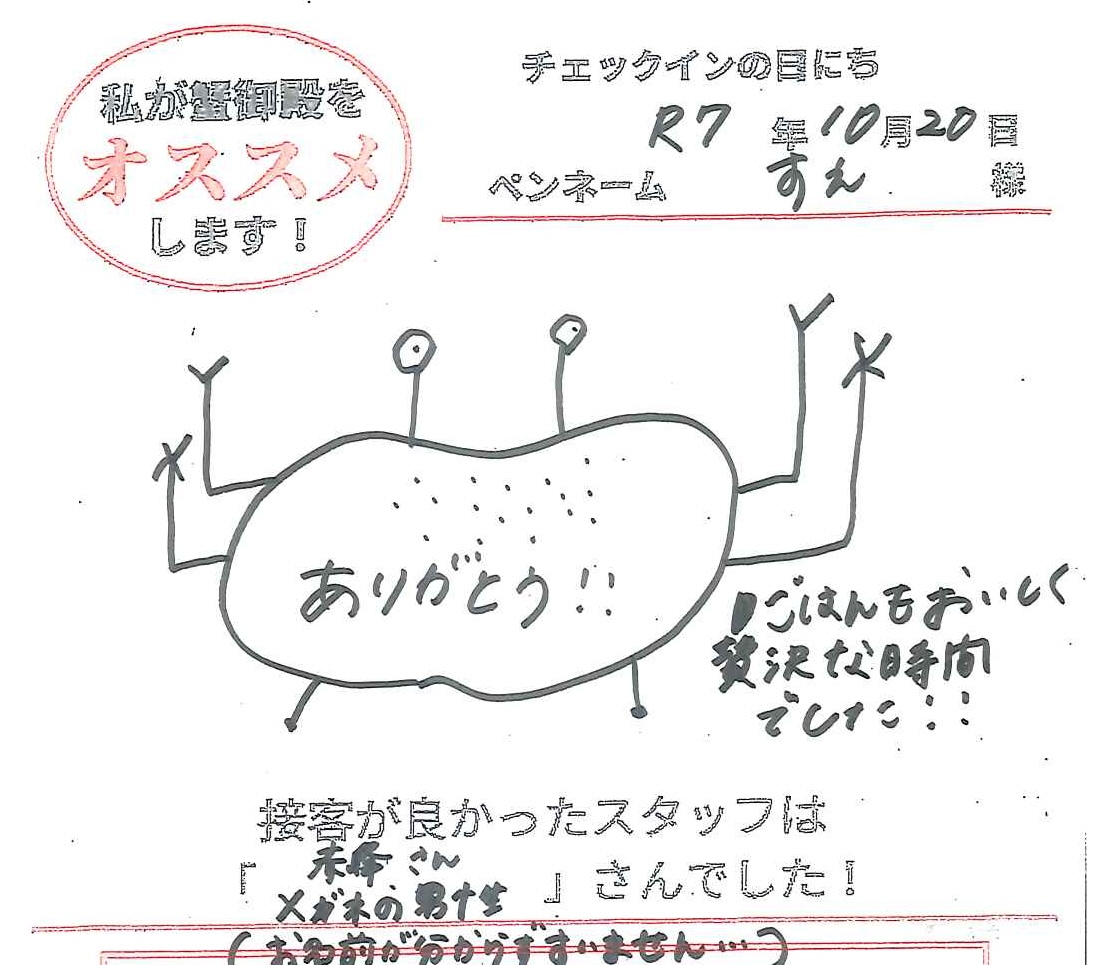 私が蟹御殿を
オススメ
します！
チェックインの日にち
R7 年 10 月 20 日
ペンネーム すえ 様
ありがとう!!
ごはんもおいしく
贅沢な時間
でした!!
接客が良かったスタッフは
「 さん 」さんでした！
メガネの男性
(お名前が分からずすいません…)